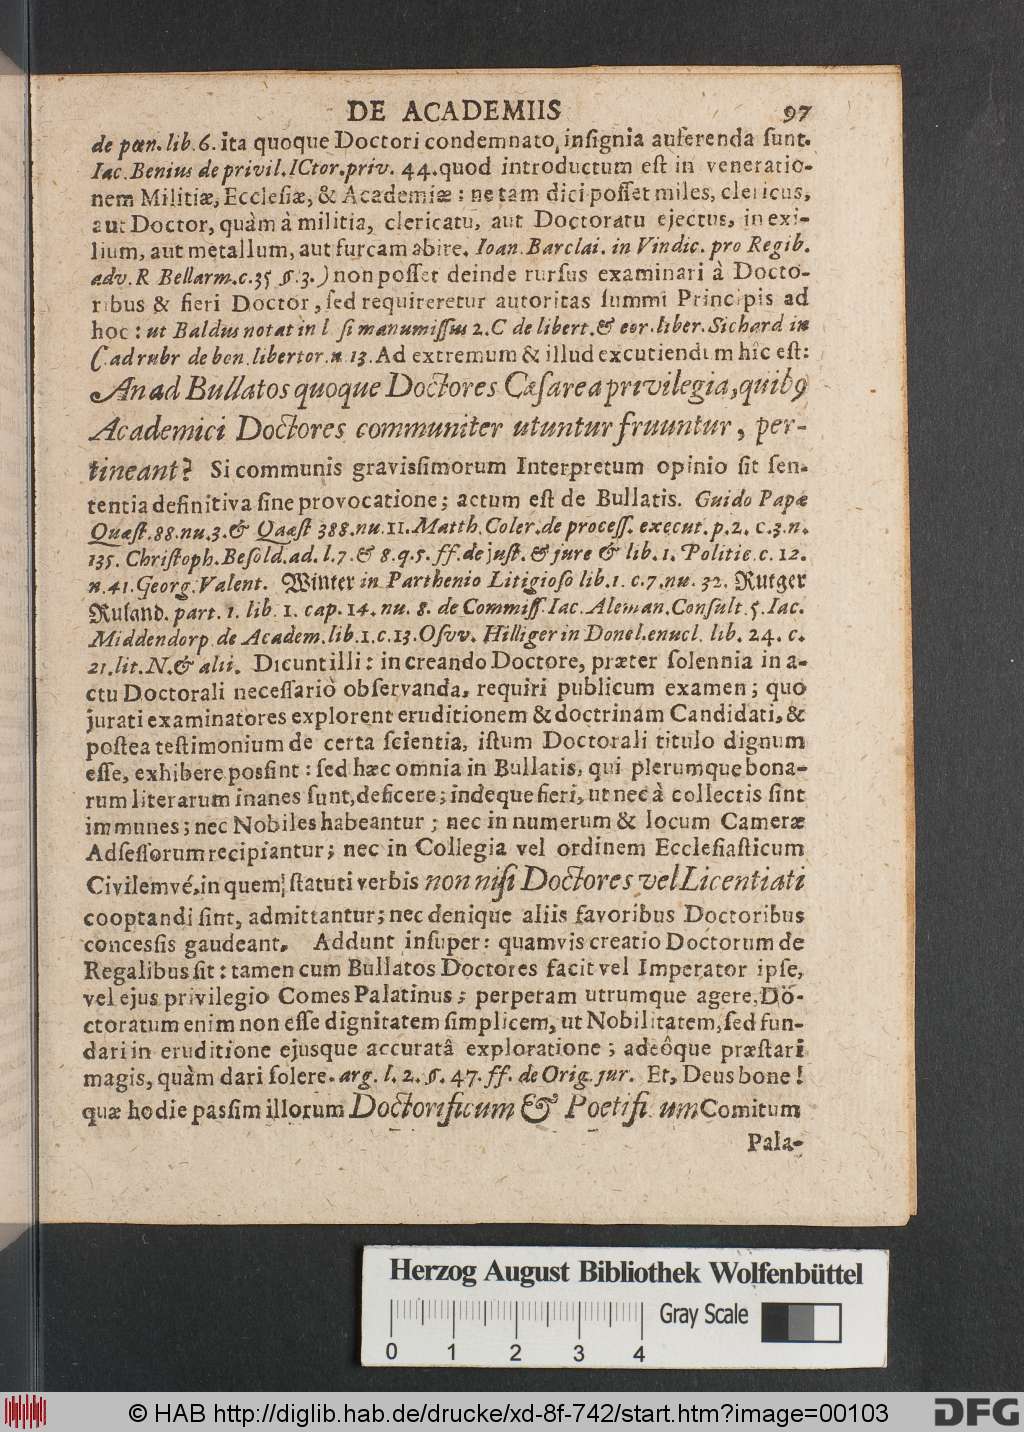 DE ACADEMIIS 97
de pœn. lib. 6. ita quoque Doctori condemnato, inſignia auferenda ſunt.
Iac. Benius de privil. ICtor. priv. 44. quod introductum eſt in veneratio-
nem Militiæ, Eccleſiæ, & Academiæ: ne tam dici poſſet miles, clericus,
aut Doctor, quàm à militia, clericatu, aut Doctoratu ejectus, in exi-
lium, aut metallum, aut furcam abire. Ioan. Barclai. in Vindic. pro Regib.
adv. R Bellarm. c. 35 §. 3. ) non poſſet deinde rurſus examinari à Docto-
ribus & fieri Doctor, ſed requireretur autoritas ſummi Principis ad
hoc: ut Baldus notat in l ſi manumiſſus 2. C de libert. & eor. liber. Sichard in
C. ad rubr de bon. libertor. n. 13. Ad extremum & illud excutiendum hîc eſt:
An ad Bullatos quoque Doctores Cæſarea privilegia, quibꝰ
Academici Doctores communiter utuntur fruuntur, per-
tineant? Si communis graviſſimorum Interpretum opinio ſit ſen-
tentia definitiva ſine provocatione; actum eſt de Bullatis. Guido Papæ
Quæſt. 88. nu. 3. & Qaæſt 388. nu. 11. Matth. Coler. de proceſſ. execut. p. 2. c. 3. n.
135. Chriſtoph. Beſold. ad. l. 7. & 8. q. 5. ff. de juſt. & jure & lib. 1. Politic. c. 12.
n. 41. Georg. Valent. Winter in Parthenio Litigioſo lib. 1. c. 7. nu. 32. Rutger
Ruland. part. 1. lib. 1. cap. 14. nu. 8. de Commiſſ. Iac. Aleman. Conſult. 5. Iac.
Middendorp de Academ. lib. 1. c. 13. Oſvv. Hilliger in Donel. enucl. lib. 24. c.
21. lit. N. & alii. Dicunt illi: in creando Doctore, præter ſolennia in a-
ctu Doctorali neceſſariò obſervanda, requiri publicum examen; quo
jurati examinatores explorent eruditionem & doctrinam Candidati, &
poſtea teſtimonium de certa ſcientia, iſtum Doctorali titulo dignum
eſſe, exhibere poſſint: ſed hæc omnia in Bullatis, qui plerumque bona-
rum literarum inanes ſunt, deficere; indeque fieri, ut nec à collectis ſint
immunes; nec Nobiles habeantur; nec in numerum & locum Cameræ
Adſeſſorum recipiantur; nec in Collegia vel ordinem Eccleſiaſticum
Civilemvé, in quem ſtatuti verbis non niſi Doctores vel Licentiati
cooptandi ſint, admittantur; nec denique aliis favoribus Doctoribus
conceſſis gaudeant. Addunt inſuper: quamvis creatio Doctorum de
Regalibus ſit: tamen cum Bullatos Doctores facit vel Imperator ipſe,
vel ejus privilegio Comes Palatinus; perperam utrumque agere, Do-
ctoratum enim non eſſe dignitatem ſimplicem, ut Nobilitatem, ſed fun-
dari in eruditione ejusque accuratâ exploratione; adeôque præſtari
magis, quàm dari ſolere. arg. l. 2. §. 47. ff. de Orig. jur. Et, Deus bone!
quæ hodie paſſim illorum Doctorificum & Poetifi um Comitum
Pala-
Herzog August Bibliothek Wolfenbüttel
Gray Scale
0 1 2 3 4
© HAB http://diglib.hab.de/drucke/xd-8f-742/start.htm?image=00103
DFG